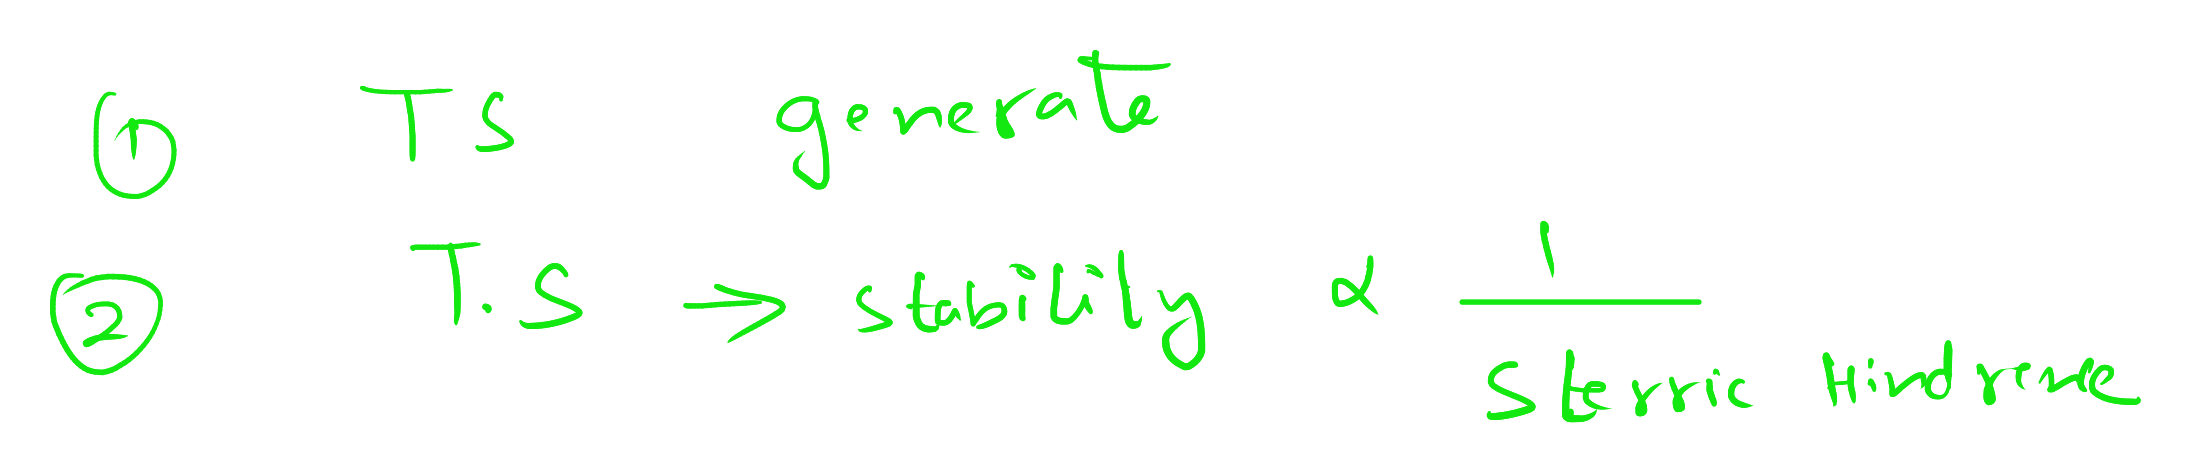 ① TS generate
② T.S → stability ∝ 1
Sterric Hindrence